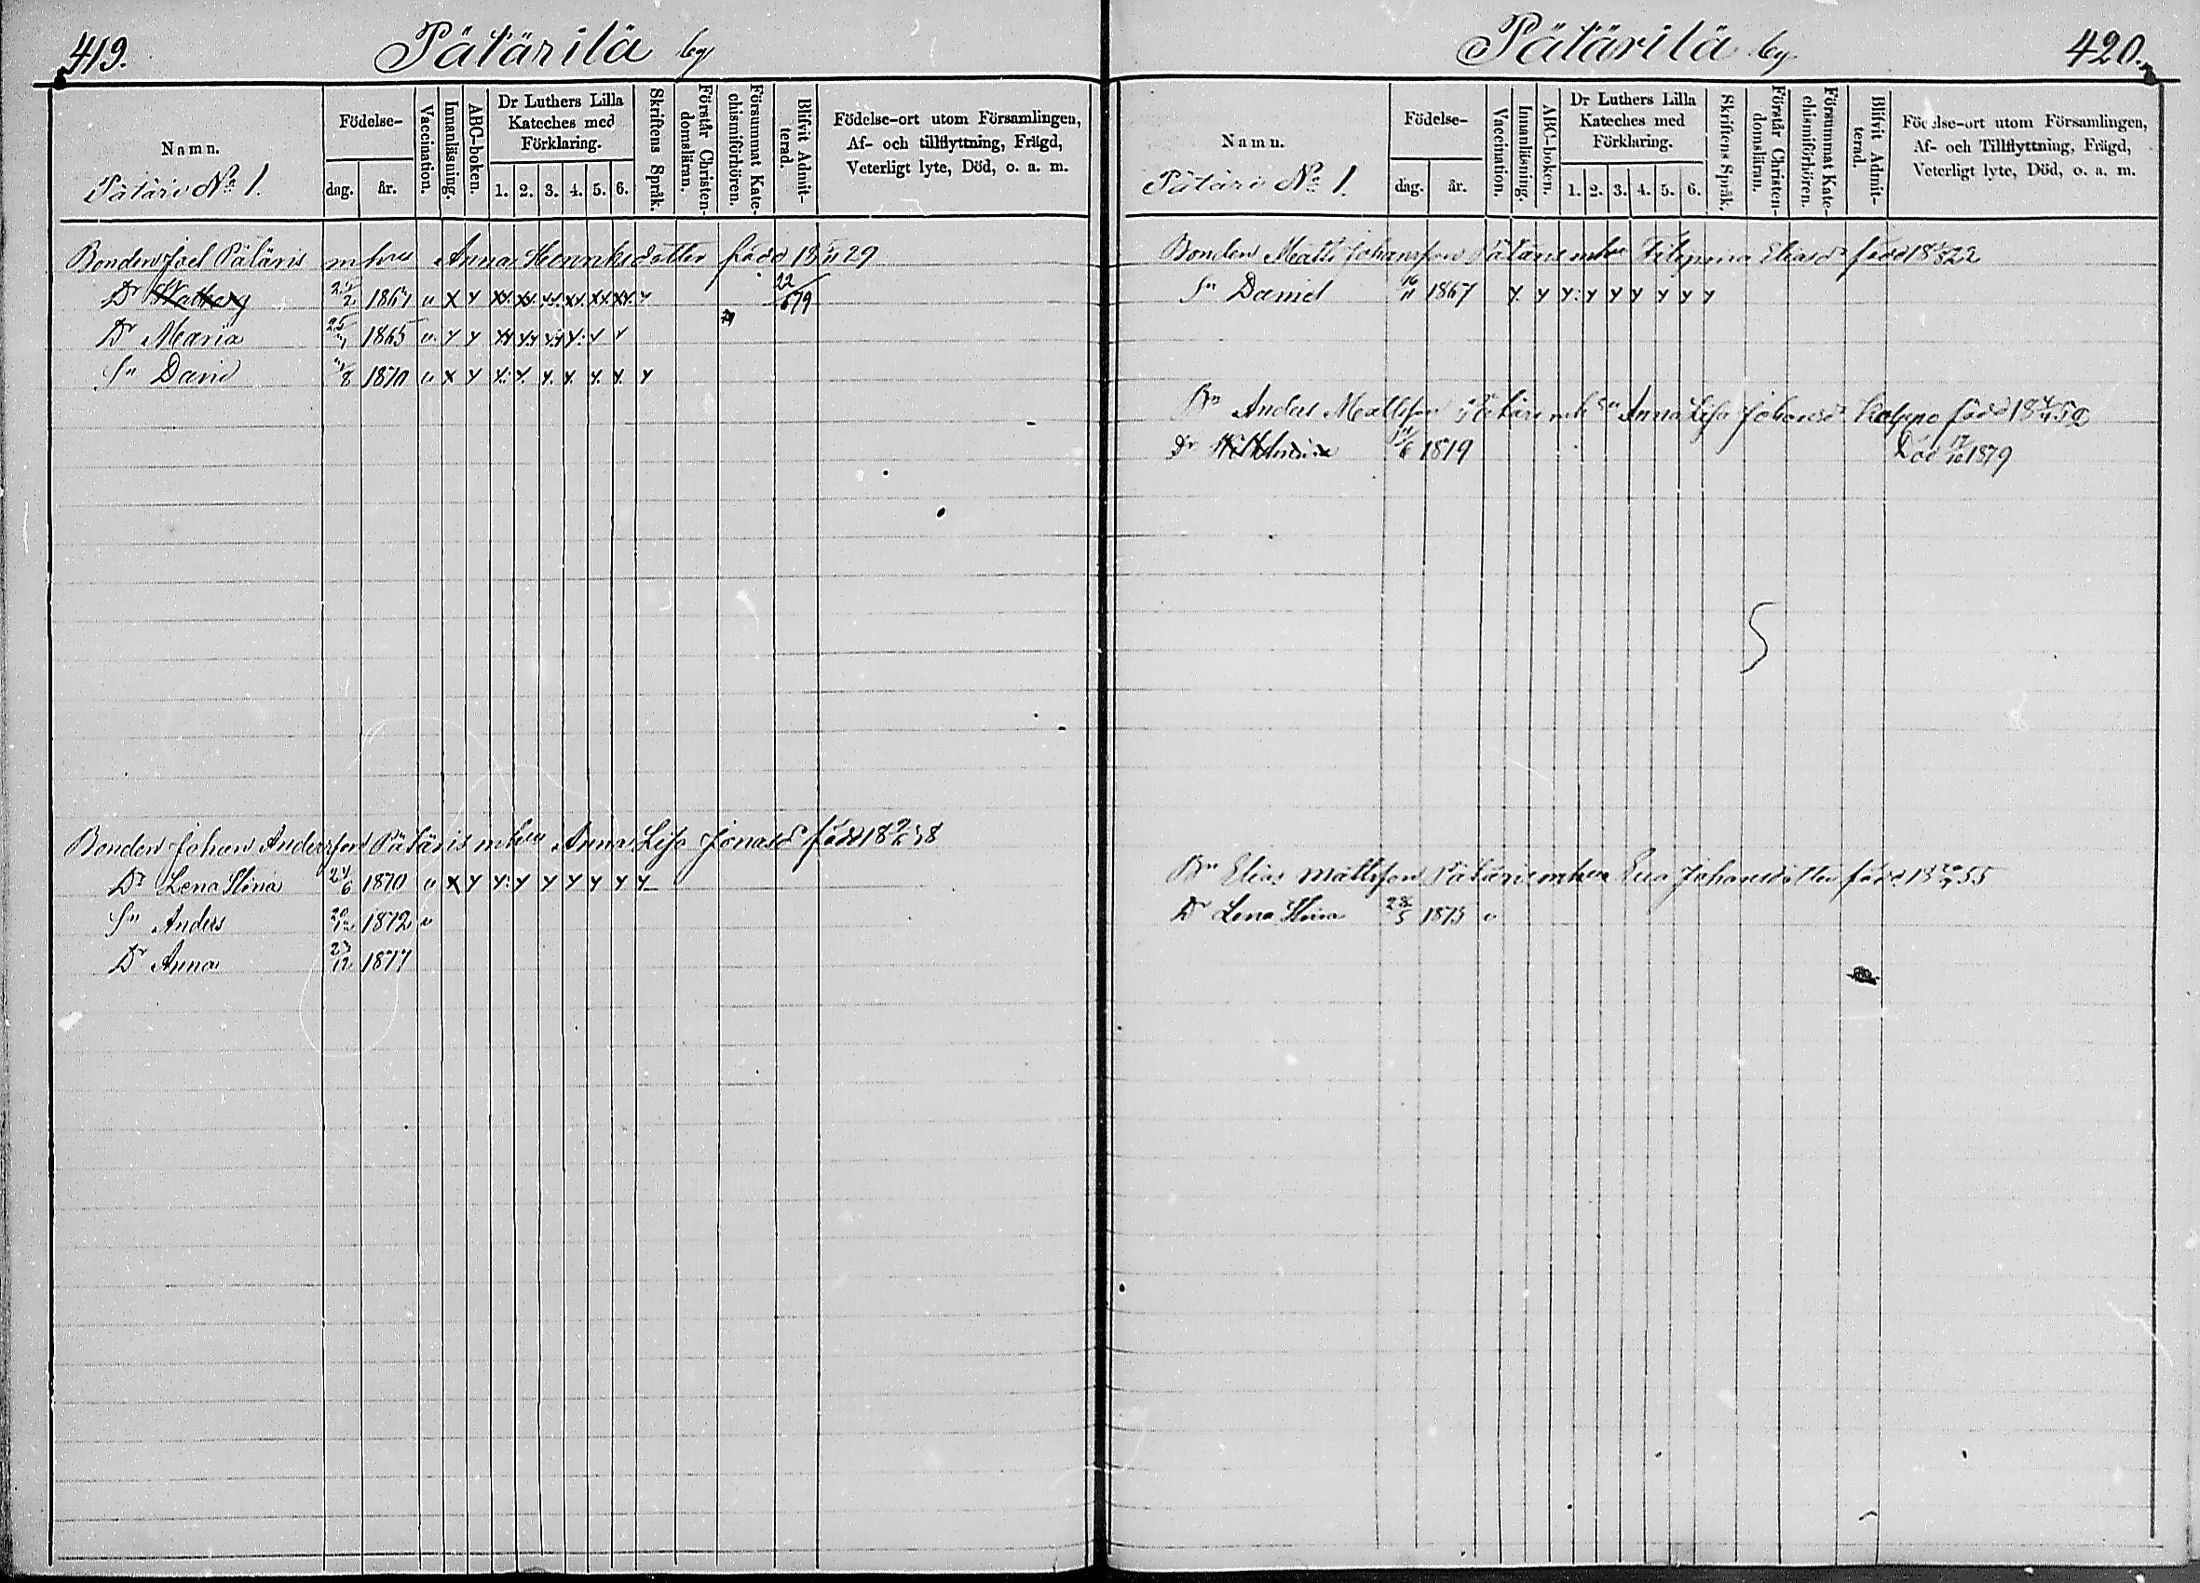 419.
Pätärilä by
Namn.
Pätäri No 1.
Födelse-
dag.
år.
Vaccination.
Innanläsning.
ABC-boken.
Dr Luthers Lilla
Kateches med
Förklaring.
1. 2. 3. 4. 5. 6.
Skriftens Språk.
Förstår Christen-
domsläran.
Försummat Kate-
chismiförhören.
Blifvit Admit-
terad.
Födelse-ort utom Församlingen,
Af- och tillflyttning, Frägd,
Veterligt lyte, Död, o. a. m.
Bonden Joel Pätäris m hus Anna Henriksdotter född 18 29
Dr 1864 v x y 22/6 79
Dr Maria 25 1865 v. y y
Sn David 8 1870 v x y
Bonden Johan Andersson Pätäris m hus Anna Lisa Jonasd född 18 38
Dr Lena Stina 24/6 1870 v x y y: y y y y y y
Sn Anders 1872 v
Dr Anna 23/12 1877
Pätärilä by
420.
Namn.
Pätäri No 1.
Födelse-
dag.
år.
Vaccination.
Innanläsning.
ABC-boken.
Dr Luthers Lilla
Kateches med
Förklaring.
1. 2. 3. 4. 5. 6.
Skriftens Språk.
Förstår Christen-
domsläran.
Försummat Kate-
chismiförhören.
Blifvit Admit-
terad.
Födelse-ort utom Församlingen,
Af- och Tillflyttning, Frägd,
Veterligt lyte, Död, o. a. m.
Bonden Matts Johansson Pätäri m hu Filippina Eliasdr född 18 22
Sn Daniel 16/11 1867 y y y: y y y y y y
Bn Anders Mattsson Pätäri m h Anna Lisa Johansdr född 18 52
Dr 1819 Död 17/10 1879
Bn Elias Mattsson Pätäri m hu Eva Johansdotter född 18 55
Dr Lena Stina 28/5 1875 v